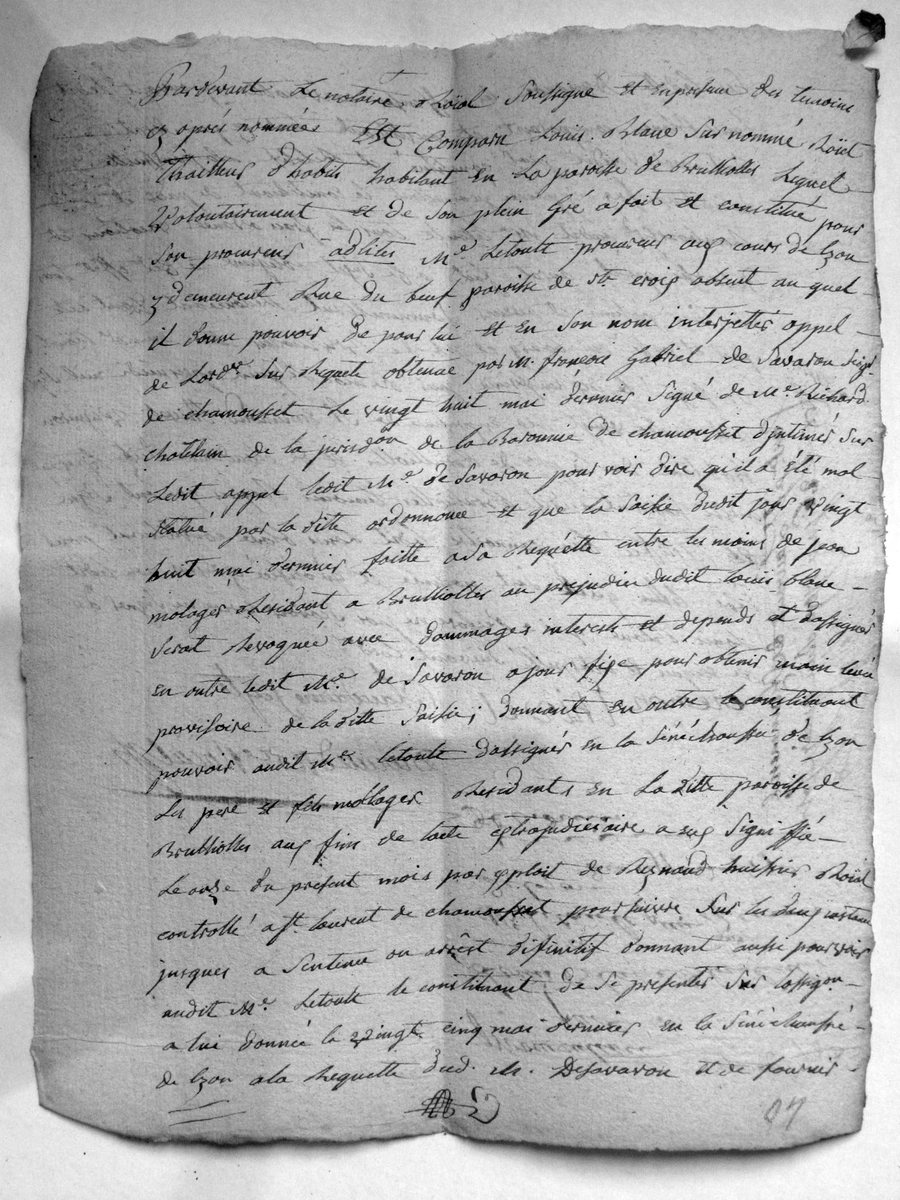 Pardevant Le notaire Roïal Soussigné et en presence des temoins
cy aprés nommées Est Comparu Louis Blanc Surnommé Roïet
Thailleur d'habits habitant en La paroisse de Brulliolles Lequel
Volontairement et de Son plein Gré a fait et constitué pour
Son procureur adlites Me. Letoulle procureur aux cours de Lyon
y demeurent Rue du beuf paroisse de Ste. croix absent au quel
il donne pouvoir de pour lui et en Son nom interjetter appel
de Lordce Sur Requete obtenue par M. françois Gabriel de Savaron Seigr
de chamousset Le vingt huit mai dernier Signé de Me. Richard
chatelain de la jurisdon de la Baronnie de chamousset d'intimer Sur
Ledit appel ledit Mr. de Savaron pour voir dire qu'il a été mal
Statué par la dite ordonnance et que la Saisie dudit jour vingt
huit mai dernier faitte a Sa Requette entre les mains de jean
molager Residant a Brulliolles au prejudice dudit Louis blanc
Serat Revoquée avec dommages interests et depends et d'assigner
en outre ledit Mr. de Savaron a jour fixe pour obtenir main levé
provisoire de la ditte Saisie; donnant en outre le constituant
pouvoir audit Me. Letoulle d'assigner en la Sénéchaussée de Lyon
Les pere et fils molager Residants en La ditte paroisse de
Brulliolles aux fins de lacte extrajudiciaire a eux Signiffié
Le onze du present mois par exploit de Reynaud huissier Roïal
controllé a St. laurent de chamousset poursuivre Sur les deux instances
jusques a Sentence ou arrest difinitif donnant aussi pouvoir
audit Me. Letoulle le constituant de Se presenter Sur lassigon
a lui donnée le vingt cinq mai dernier en la Sénéchaussée
de Lyon a la Requette dud. M. DeSavaron et de fournir